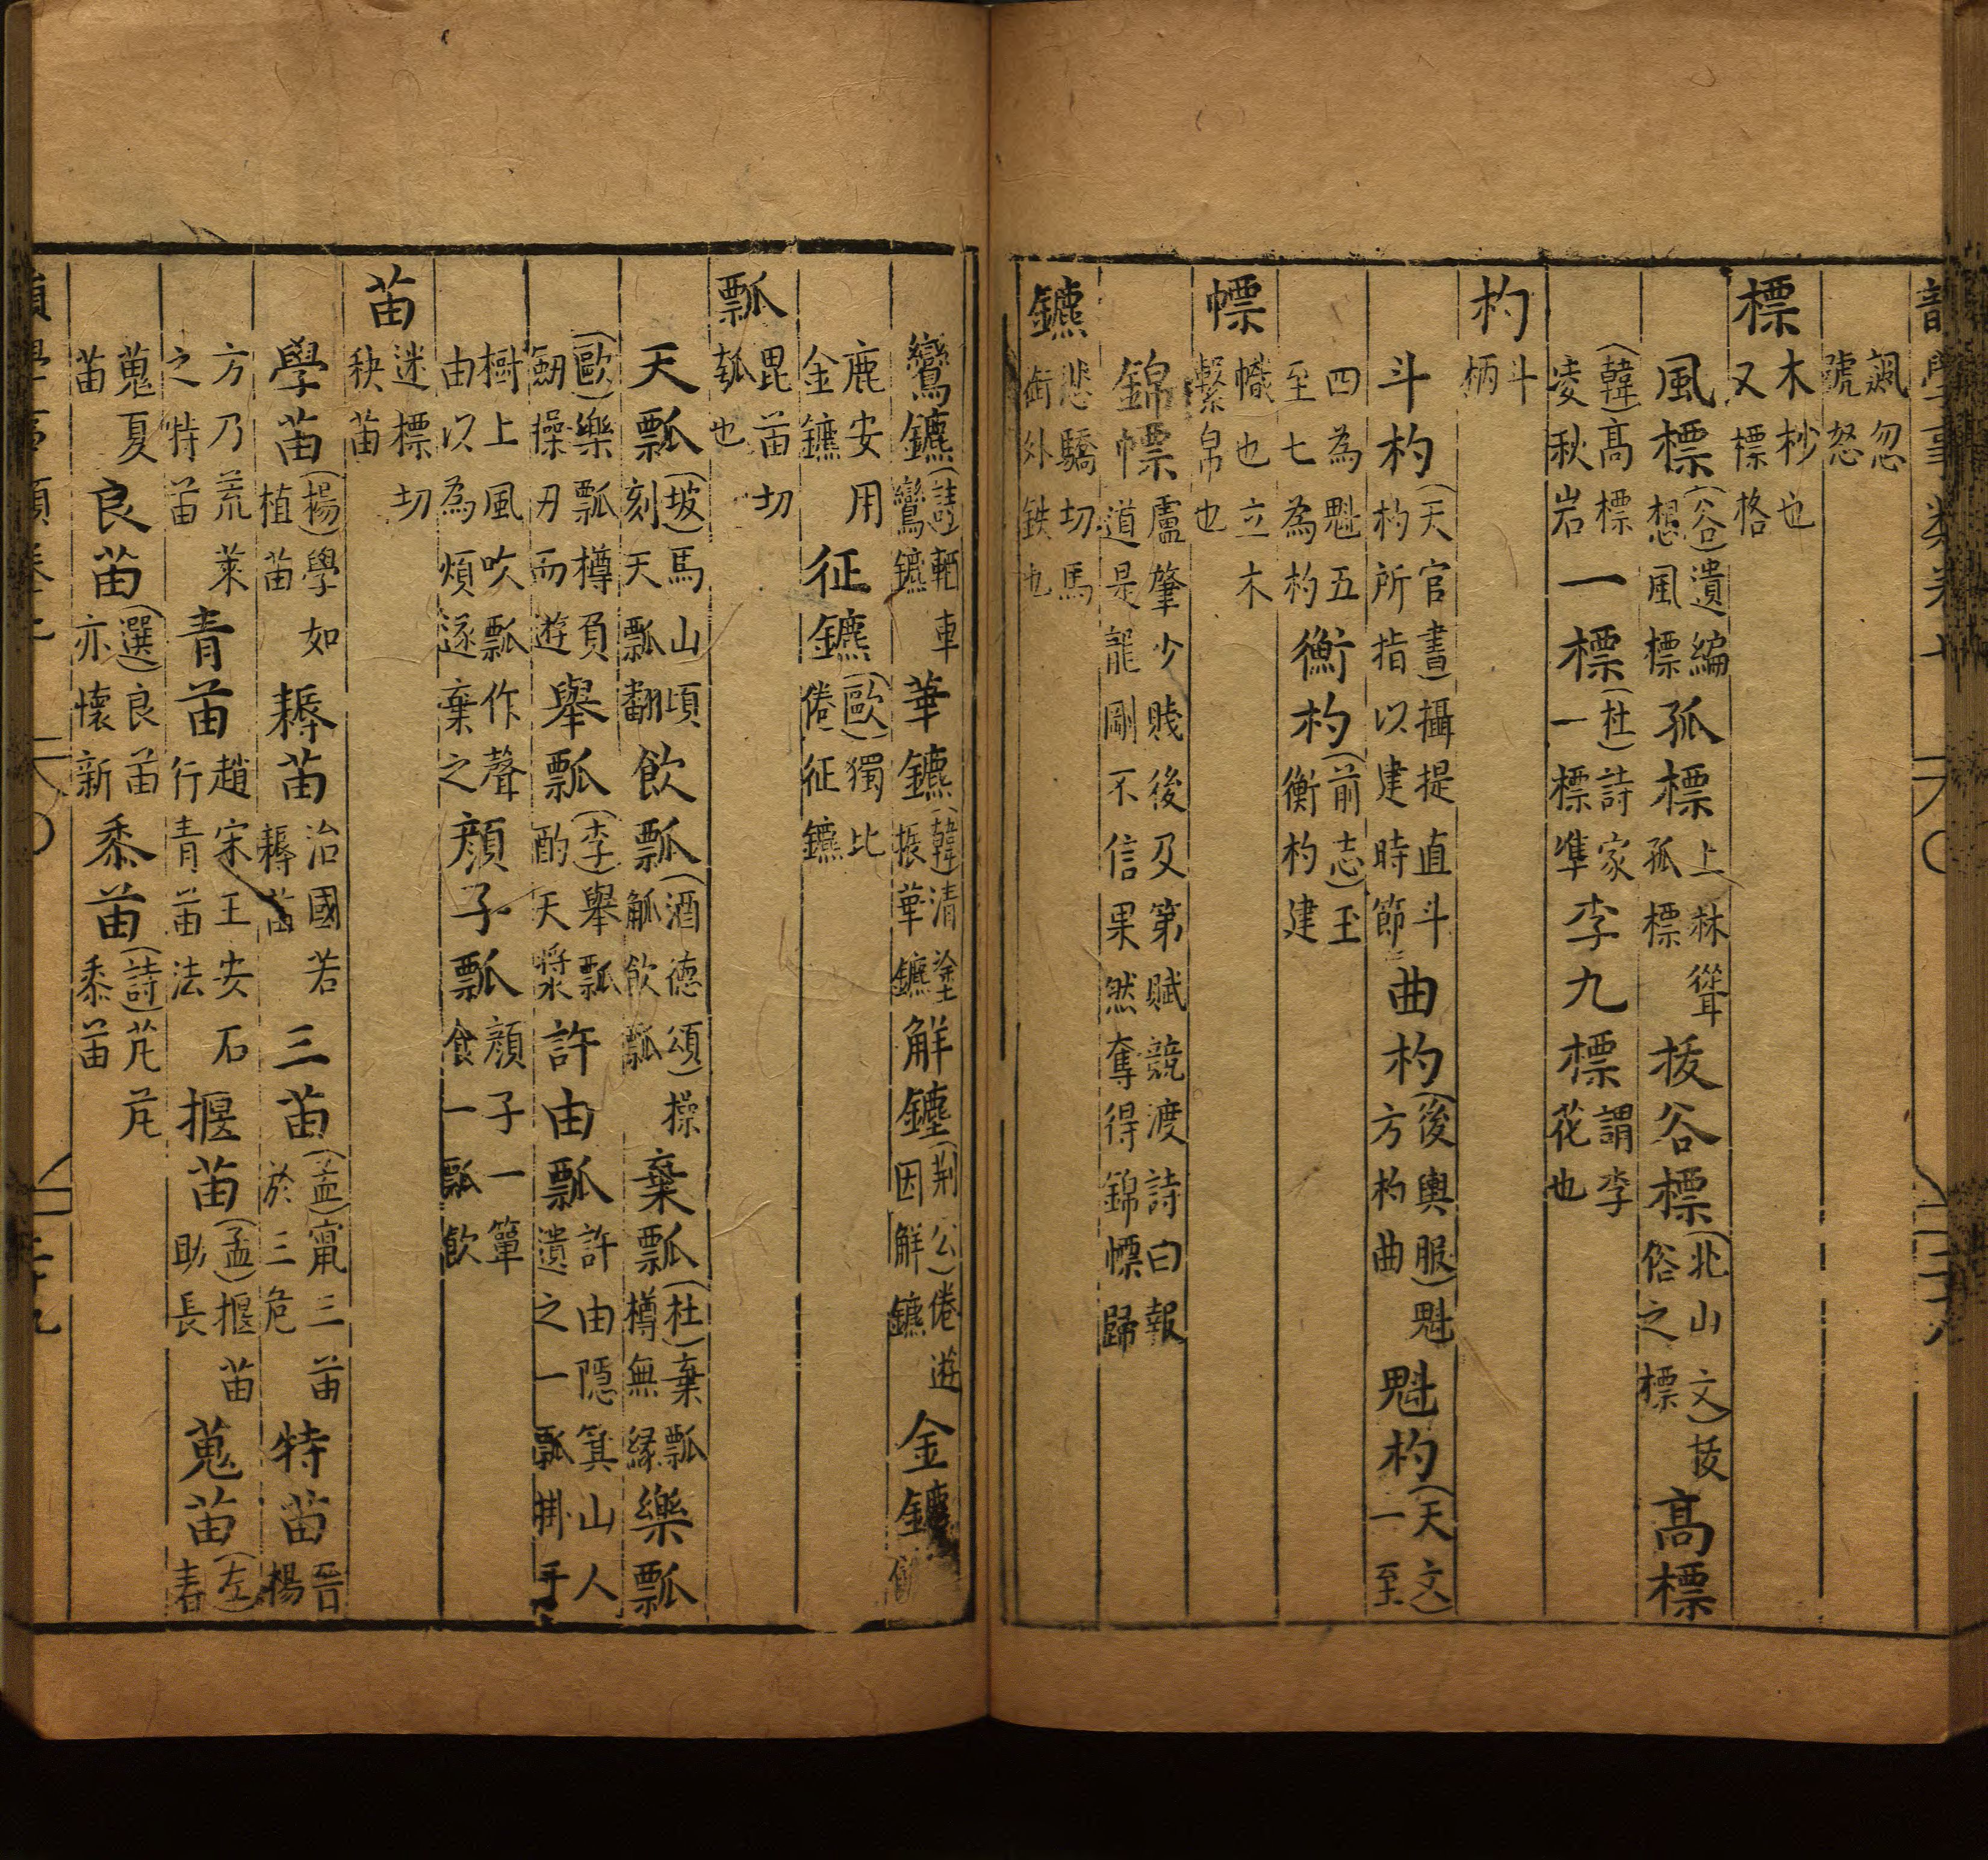 飆忽號怒
標 木杪也又標格
風標(谷)遺編想風標 孤標 上林聳孤標 拔谷標(北山文)拔俗之標 高標
(韓)高標凌秋岩 一標(杜)詩家一標準 李九標 謂李花也
杓 斗柄
斗杓(天官書)攝提直斗杓所指以建時節 曲杓(後輿服)魁方杓曲 魁杓(天文)一至
四為魁五至七為杓 衡杓(前志)玉衡杓建
幖 幟也立木繫帛也
錦幖 盧肇少賤後及第賦競渡詩曰報道是龍剛不信果然奪得錦幖歸
鑣 悲驕切馬銜外鉄也
鸞鑣(詩)輶車鸞鑣 華鑣(韓)清塗振華鑣 解鑣(荆公)倦遊因解鑣 金鑣
鹿安用金鑣 征鑣(歐)獨比倦征鑣
瓢 毘苗切瓠也
天瓢(坡)馬山頃刻天瓢翻 飲瓢(酒德頌)操觚飲瓢 棄瓢(杜)棄瓢樽無緣 樂瓢
(歐)樂瓢樽負劒操刃而遊 舉瓢(李)舉瓢酌天漿 許由瓢 許由隱箕山人遺之一瓢掛手
樹上風吹瓢作聲由以為煩逐棄之 顔子瓢 顔子一簞食一瓢飲
苗 迷標切秧苗
學苗(楊)學如植苗 耨苗 治國若耨苗 三苗(孟)竄三苗於三危 特苗 晉楊
方乃荒萊之特苗 青苗 趙宋王安石行青苗法 揠苗(孟)揠苗助長 蒐苗(左)春
蒐夏苗 良苗(選)良苗亦懷新 黍苗(詩)芃芃黍苗